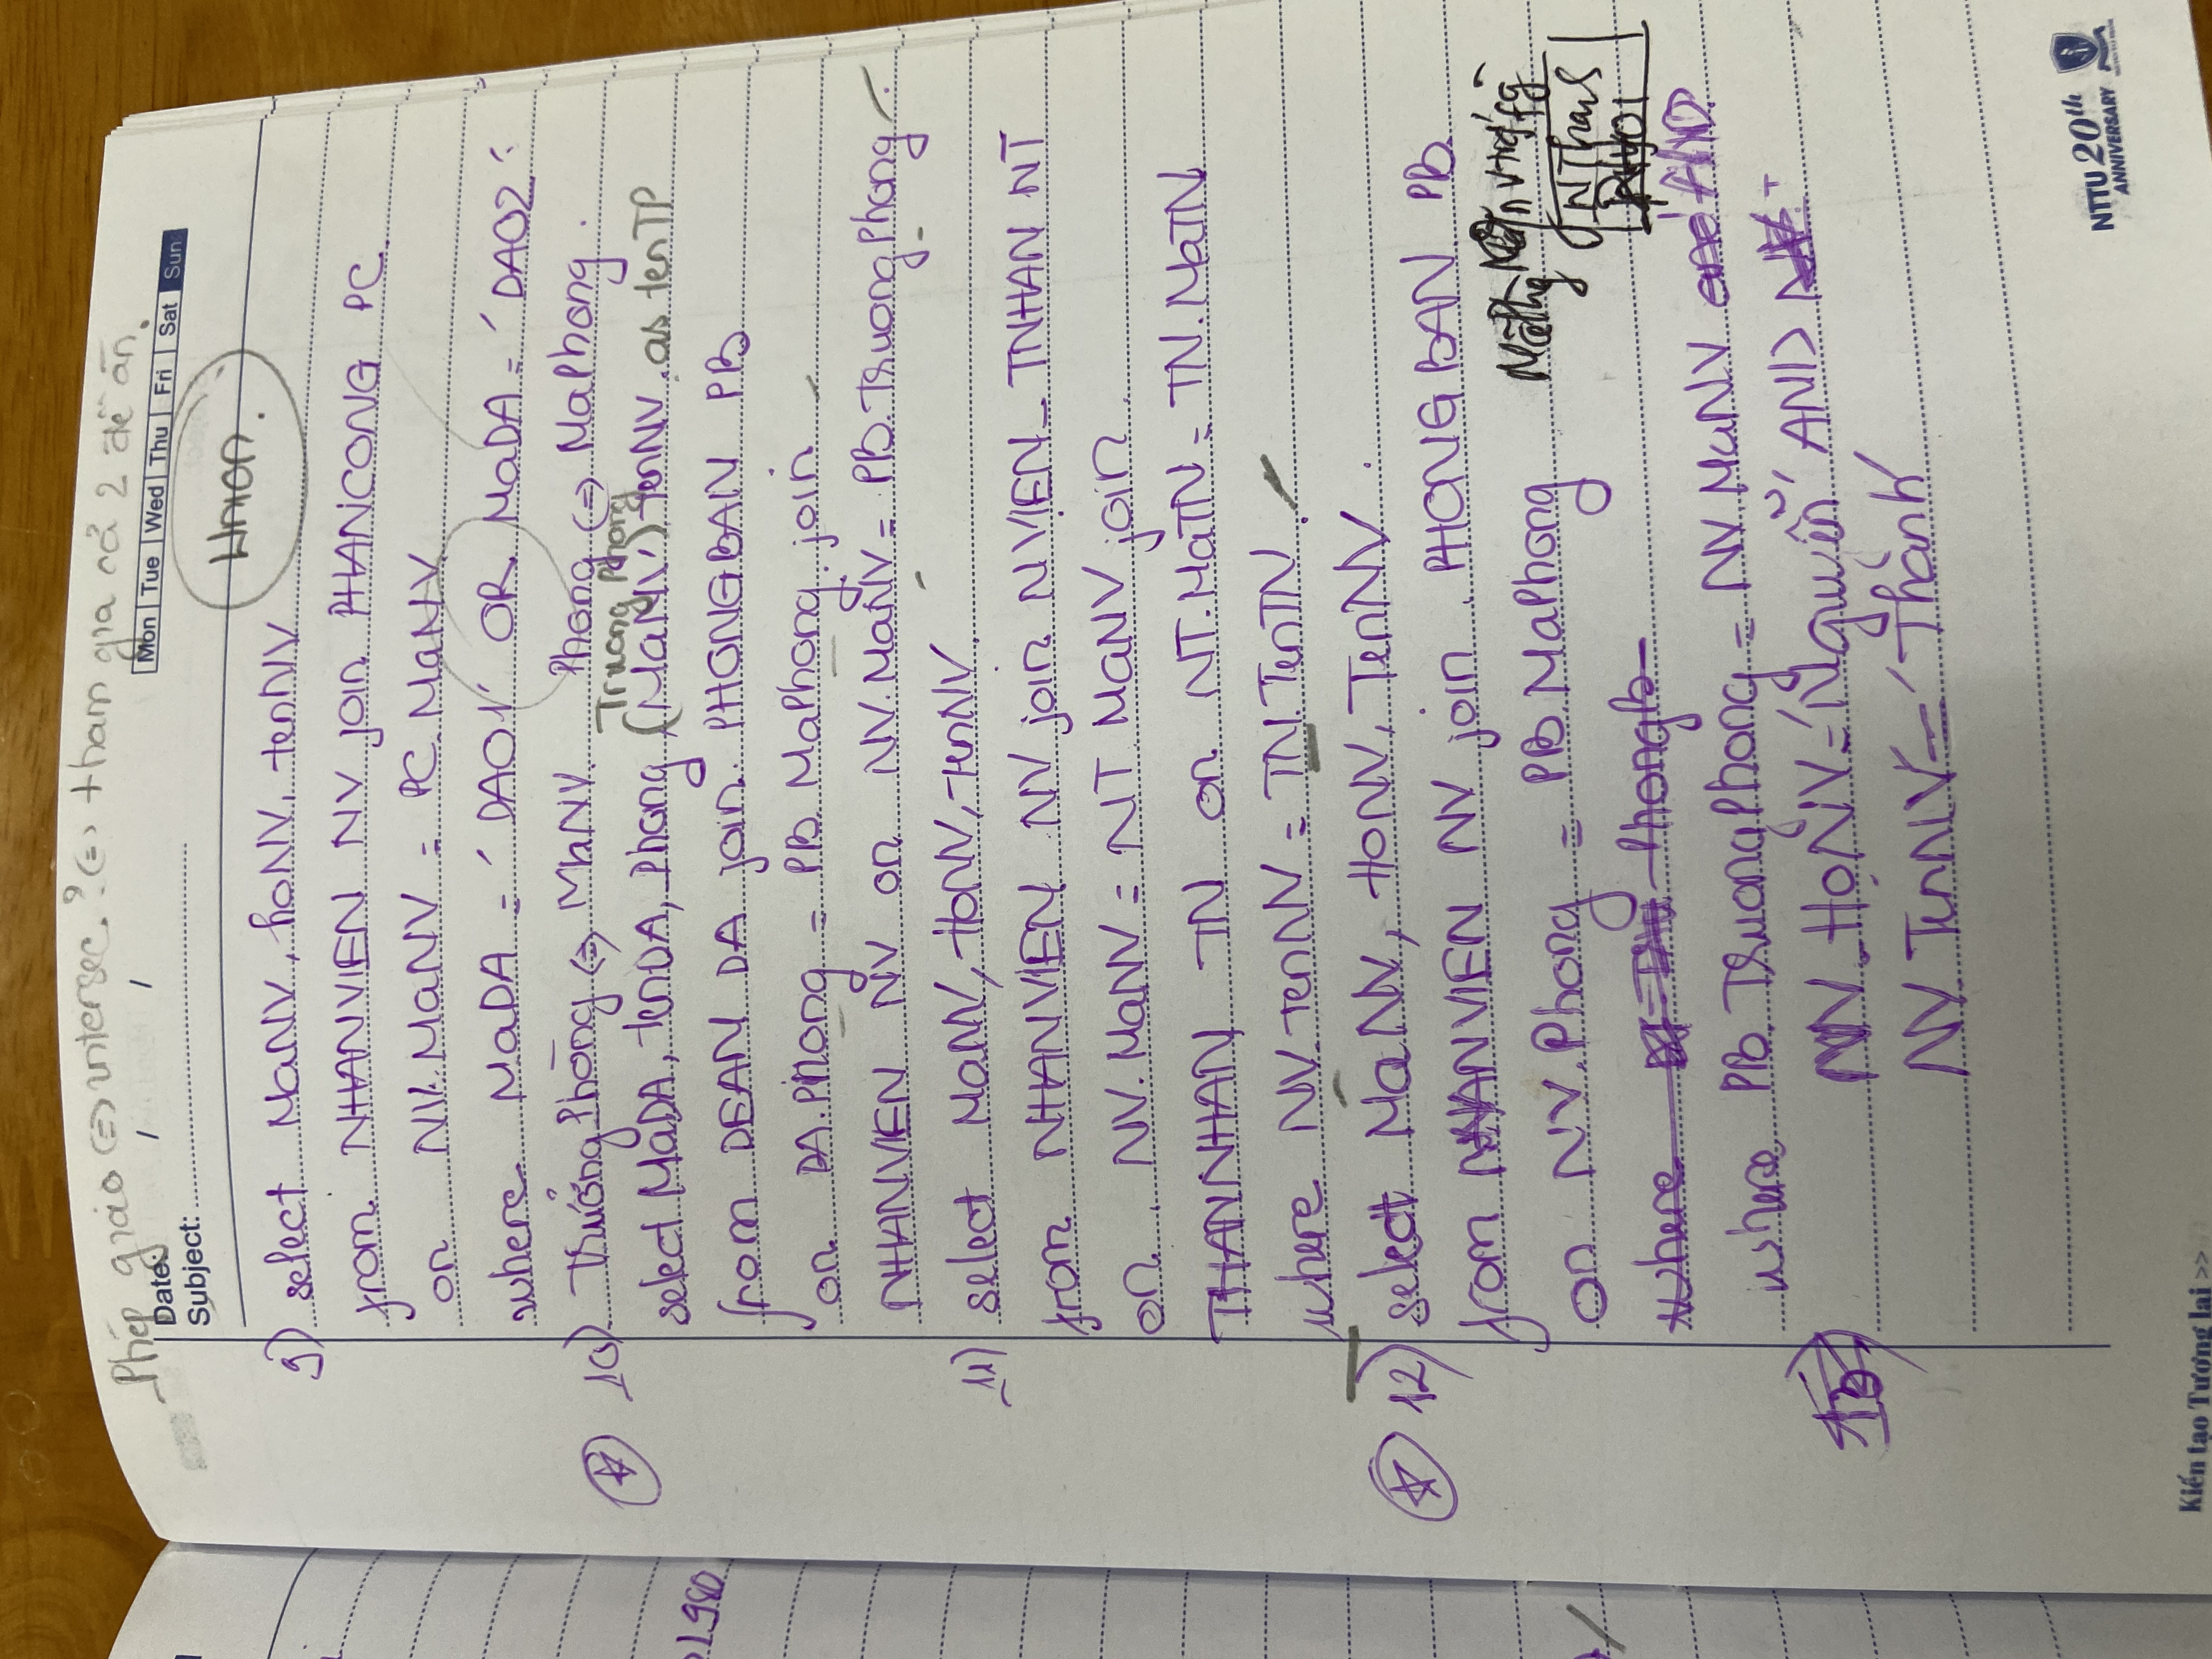 Phép giao <=> intersec.? <=> tham gia cả 2 đề án.
Date: / /
Mon Tue Wed Thu Fri Sat Sun
Subject:
Union.
9) select MaNV, hoNV, tenNV
from NHANVIEN NV join PHANCONG PC.
on NV.MaNV = PC.MaNV
where MaDA = 'DA01' OR MaDA = 'DA02'
10) Trưởng Phòng <=> MaNV. Phong <=> MaPhong.
Truong Phong
select MaDA, tenDA, Phong, (MaNV) tenNV as tenTP
from DEAN DA join PHONGBAN PB
on DA.Phong = PB.MaPhong join
NHANVIEN NV on NV.MaNV = PB.TruongPhong
11) select MaNV, HoNV, tenNV
from NHANVIEN NV join NVIEN_TNHAN NT
on NV.MaNV = NT.MaNV join
THANNHAN TN on NT.MaTN = TN.MaTN
where NV.TenNV = TN.TenTN.
12) select MaNV, HoNV, TenNV.
from NHANVIEN NV join PHONGBAN PB
on NV.Phong = PB.MaPhong
where PhongB
where PB.TruongPhong = NV.MaNV and AND
13) NV.HoNV = 'Nguyễn' AND
NV.TenNV = 'Thành'
1980
NTTU 20th
ANNIVERSARY
Kiến tạo Tương lai >>